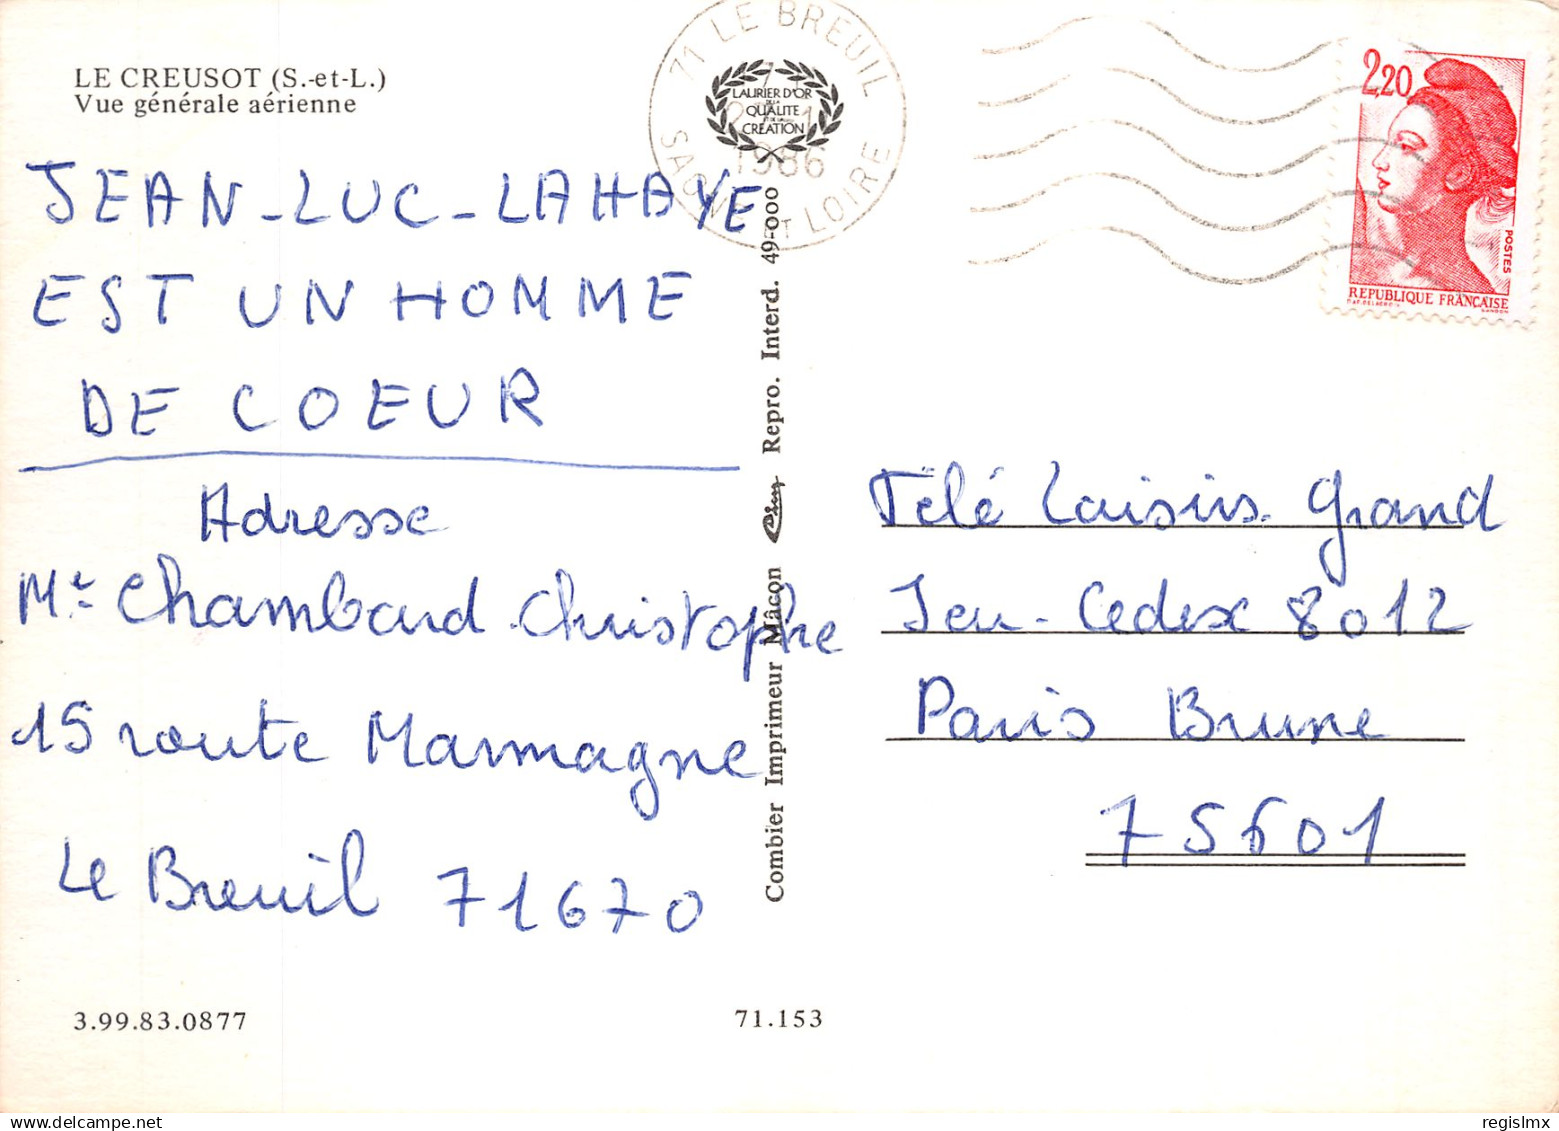 LE CREUSOT (S.-et-L.)
Vue générale aérienne
71 LE BREUIL
SAON ET LOIRE
1986
LAURIER D'OR
DE LA
QUALITE
ET DE LA
CREATION
2,20
POSTES
REPUBLIQUE FRANCAISE
JEAN-LUC-LAHAYE
EST UN HOMME
DE COEUR
Adresse
Mr Chambard Christophe
15 route Marmagne
Le Breuil 71670
Combier Imprimeur Mâcon Cim Repro. Interd. 49-000
Télé Loisirs Grand
Jeu - Cedex 8012
Paris Brune
75601
3.99.83.0877
71.153
regislmx